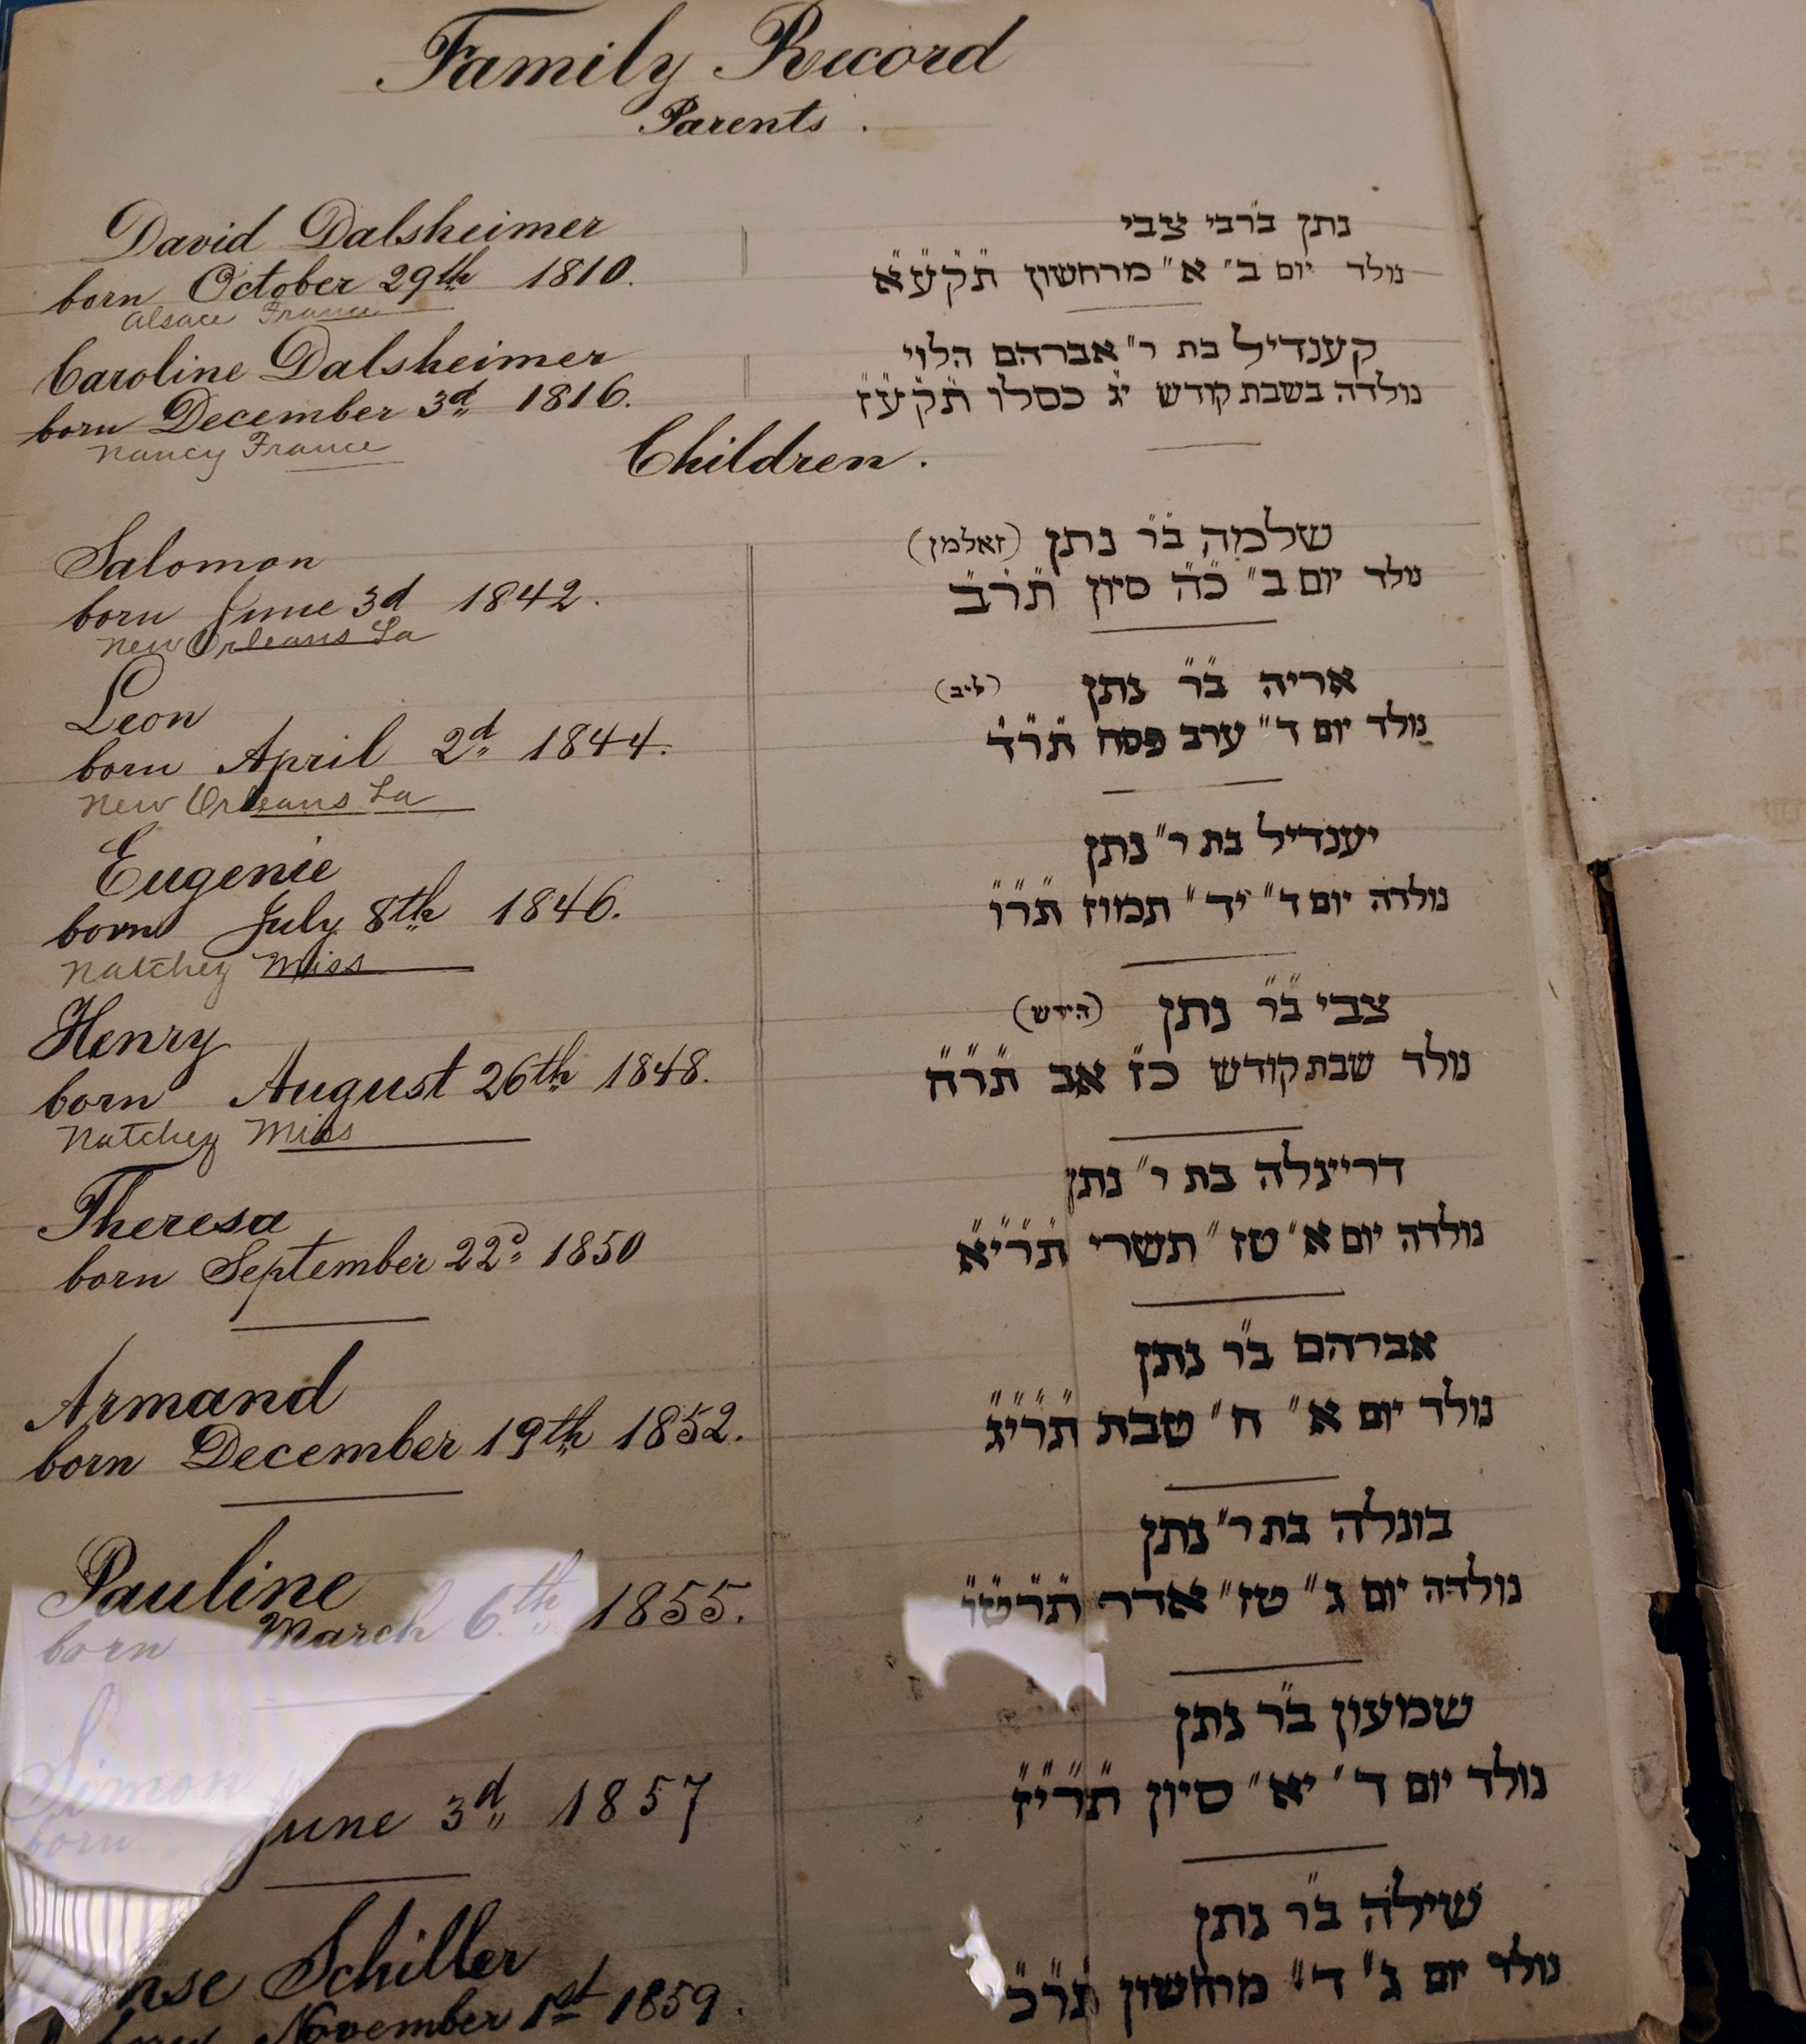 Family Record
Parents.
David Dalsheimer
born October 29th 1810.
Alsace France
נתן ברבי צבי
נולד יום ב״ א״ מרחשון תקעא
Caroline Dalsheimer
born December 3d 1816.
Nancy France
קענדיל בת ר״ אברהם הלוי
נולדה בשבת קודש יג כסלו תקעז
Children.
Salomon
born June 3d 1842.
New Orleans La
שלמה בר נתן (זאלמן)
נולד יום ב״ כה סיון תרב
Leon
born April 2d 1844.
New Orleans La
אריה בר נתן (ליב)
נולד יום ד״ ערב פסח תרד
Eugenie
born July 8th 1846.
Natchez Miss
יענדיל בת ר״ נתן
נולדה יום ד״ יד״ תמוז תרו
Henry
born August 26th 1848.
Natchez Miss
צבי בר נתן (הירש)
נולד שבת קודש כז אב תרח
Theresa
born September 22d 1850
דריינלה בת ר״ נתן
נולדה יום א״ טז״ תשרי תריא
Armand
born December 19th 1852.
אברהם בר נתן
נולד יום א״ ח״ טבת תריג
Pauline
born March 6th 1855.
בונלה בת ר״ נתן
נולדה יום ג״ טז״ אדר תרטו
Simon
born June 3d 1857
שמעון בר נתן
נולד יום ד״ יא״ סיון תריז
nse Schiller
born November 1st 1859.
שילה בר נתן
נולד יום ג״ ד״ מרחשון תרכ